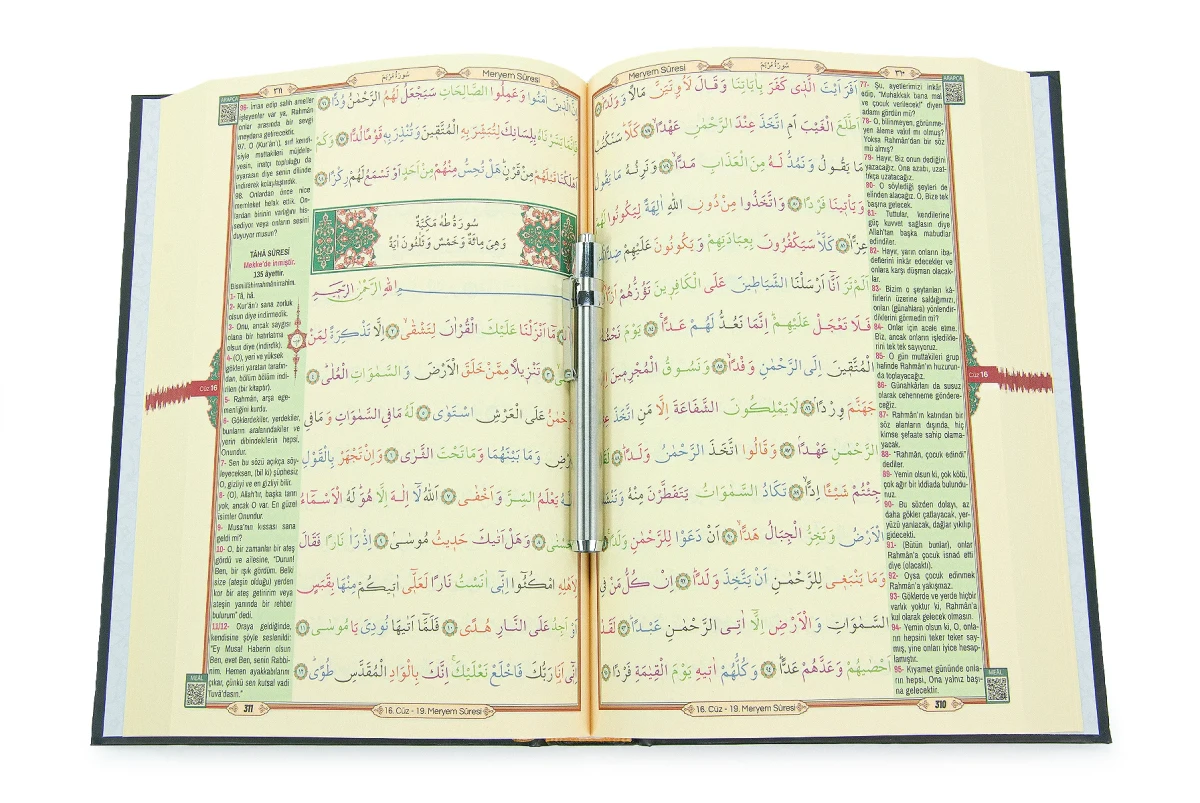 ٣١٠
سُورَةُ مَرْيَمَ
Meryem Sûresi
اَفَرَاَيْتَ الَّذ۪ي كَفَرَ بِاٰيَاتِنَا وَقَالَ لَاُو۫تَيَنَّ مَالًا وَوَلَدًاۜ
اَطَّلَعَ الْغَيْبَ اَمِ اتَّخَذَ عِنْدَ الرَّحْمٰنِ عَهْدًاۙ كَلَّاۜ سَنَكْتُبُ
مَا يَقُولُ وَنَمُدُّ لَهُ مِنَ الْعَذَابِ مَدًّاۙ وَنَرِثُهُ مَا يَقُولُ
وَيَأْت۪ينَا فَرْدًا وَاتَّخَذُوا مِنْ دُونِ اللّٰهِ اٰلِهَةً لِيَكُونُوا لَهُمْ
عِزًّاۙ كَلَّاۜ سَيَكْفُرُونَ بِعِبَادَتِهِمْ وَيَكُونُونَ عَلَيْهِمْ ضِدًّا
اَلَمْ تَرَ اَنَّٓا اَرْسَلْنَا الشَّيَاط۪ينَ عَلَى الْكَافِر۪ينَ تَؤُزُّهُمْ اَزًّاۙ
فَلَا تَعْجَلْ عَلَيْهِمْۜ اِنَّمَا نَعُدُّ لَهُمْ عَدًّاۚ يَوْمَ نَحْشُرُ
الْمُتَّق۪ينَ اِلَى الرَّحْمٰنِ وَفْدًاۙ وَنَسُوقُ الْمُجْرِم۪ينَ
جَهَنَّمَ وِرْدًاۢ لَا يَمْلِكُونَ الشَّفَاعَةَ اِلَّا مَنِ اتَّخَذَ
الرَّحْمٰنِ عَهْدًاۢ وَقَالُوا اتَّخَذَ الرَّحْمٰنُ وَلَدًاۜ
جِئْتُمْ شَيْـًٔا اِدًّاۙ تَكَادُ السَّمٰوَاتُ يَتَفَطَّرْنَ مِنْهُ وَتَنْشَقُّ
الْاَرْضُ وَتَخِرُّ الْجِبَالُ هَدًّاۙ اَنْ دَعَوْا لِلرَّحْمٰنِ وَلَدًاۚ
وَمَا يَنْبَغ۪ي لِلرَّحْمٰنِ اَنْ يَتَّخِذَ وَلَدًاۜ اِنْ كُلُّ مَنْ فِي
السَّمٰوَاتِ وَالْاَرْضِ اِلَّٓا اٰتِي الرَّحْمٰنِ عَبْدًاۜ لَقَدْ
اَحْصٰيهُمْ وَعَدَّهُمْ عَدًّاۜ وَكُلُّهُمْ اٰت۪يهِ يَوْمَ الْقِيٰمَةِ فَرْدًا
ARAPÇA
77- Şu, ayetlerimizi inkâr
edip, "Muhakkak bana mal
ve çocuk verilecek!" diyen
adamı gördün mü?
78- O, bilinmeyen, görünme-
yen âleme vakıf mı olmuş?
Yoksa Rahmân'dan bir söz
mü almış?
79- Hayır, Biz onun dediğini
yazacağız. Ona azabı, uzat-
tıkça uzatacağız.
80- O söylediği şeyleri de
elinden alacağız. O, Bize tek
başına gelecek.
81- Tuttular, kendilerine
güç kuvvet sağlasın diye
Allah'tan başka mabudlar
edindiler.
82- Hayır, yarın onların iba-
detlerini inkâr edecekler ve
onlara karşı düşman olacak-
lar.
83- Bizim o şeytanları kâ-
firlerin üzerine saldığımızı,
onları (günahlara) yönlendir-
diklerini görmedin mi?
84- Onlar için acele etme.
Biz, ancak onların işledikle-
rini tek tek sayıyoruz.
85- O gün muttakileri grup
halinde Rahmân'ın huzurun-
da toplayacağız.
86- Günahkârları da susuz
olarak cehenneme göndere-
ceğiz.
87- Rahmân'ın katından bir
söz alanların dışında, hiç
kimse şefaate sahip olama-
yacak.
88- "Rahmân, çocuk edindi"
dediler.
89- Yemin olsun ki, çok kötü,
çok ağır bir iddiada bulundu-
nuz.
90- Bu sözden dolayı, az
daha gökler çatlayacak, yer-
yüzü yarılacak, dağlar yıkılıp
gidecekti.
91- (Bütün bunlar), onlar
Rahmân'a çocuk isnad etti
diye (olacaktı).
92- Oysa çocuk edinmek
Rahmân'a yakışmaz.
93- Göklerde ve yerde hiçbir
varlık yoktur ki, Rahmân'a
kul olarak gelecek olmasın.
94- Yemin olsun ki, O, onla-
rın hepsini teker teker say-
mış, yine onları iyice hesap-
lamıştır.
95- Kıyamet gününde onla-
rın hepsi, Ona yalnız başı-
na gelecektir.
Cüz 16
MEÂL
16. Cüz - 19. Meryem Sûresi
310
٣١١
سُورَةُ مَرْيَمَ
Meryem Sûresi
اِنَّ الَّذ۪ينَ اٰمَنُوا وَعَمِلُوا الصَّالِحَاتِ سَيَجْعَلُ لَهُمُ الرَّحْمٰنُ وُدًّا
فَاِنَّمَا يَسَّرْنَاهُ بِلِسَانِكَ لِتُبَشِّرَ بِهِ الْمُتَّق۪ينَ وَتُنْذِرَ بِه۪ قَوْمًا لُدًّا وَكَمْ
اَهْلَكْنَا قَبْلَهُمْ مِنْ قَرْنٍۜ هَلْ تُحِسُّ مِنْهُمْ مِنْ اَحَدٍ اَوْ تَسْمَعُ لَهُمْ رِكْزًا
سُورَةُ طٰهٰ مَكِّيَّةٌ
وَهِيَ مِائَةٌ وَخَمْسٌ وَثَلٰثُونَ اٰيَةً
اللّٰهِ الرَّحْمٰنِ الرَّح۪يمِ
مَٓا اَنْزَلْنَا عَلَيْكَ الْقُرْاٰنَ لِتَشْقٰىۙ اِلَّا تَذْكِرَةً لِمَنْ
تَنْز۪يلًا مِمَّنْ خَلَقَ الْاَرْضَ وَالسَّمٰوَاتِ الْعُلٰىۜ
عَلَى الْعَرْشِ اسْتَوٰى لَهُ مَا فِي السَّمٰوَاتِ وَمَا فِي
وَمَا بَيْنَهُمَا وَمَا تَحْتَ الثَّرٰى وَاِنْ تَجْهَرْ بِالْقَوْلِ
يَعْلَمُ السِّرَّ وَاَخْفٰى اَللّٰهُ لَٓا اِلٰهَ اِلَّا هُوَۜ لَهُ الْاَسْمَٓاءُ
وَهَلْ اَتٰيكَ حَد۪يثُ مُوسٰىۢ اِذْ رَاٰ نَارًا فَقَالَ
لِاَهْلِهِ امْكُثُٓوا اِنّ۪ٓي اٰنَسْتُ نَارًا لَعَلّ۪ٓي اٰت۪يكُمْ مِنْهَا بِقَبَسٍ
اَوْ اَجِدُ عَلَى النَّارِ هُدًى فَلَمَّٓا اَتٰيهَا نُودِيَ يَا مُوسٰىۜ
اِنّ۪ٓي اَنَا رَبُّكَ فَاخْلَعْ نَعْلَيْكَۚ اِنَّكَ بِالْوَادِ الْمُقَدَّسِ طُوًىۜ
ARAPÇA
96- İman edip salih ameller
işleyenler var ya, Rahmân
onlar arasında bir sevgi
meydana getirecektir.
97. O (Kur'ân'ı), sırf kendi-
siyle muttakileri müjdele-
yesin, inatçı topluluğu da
uyarasın diye senin dilinde
indirerek kolaylaştırdık.
98. Onlardan önce nice
memleket helak ettik. On-
lardan birinin varlığını his-
sediyor veya onların sesini
duyuyor musun?
TÂHÂ SÛRESİ
Mekke'de inmiştir.
135 âyettir.
Bismillâhirrahmânirrahîm.
1- Tâ, hâ.
2- Kur'ân'ı sana zorluk
olsun diye indirmedik.
3- Onu, ancak saygısı
olana bir hatırlatma
olsun diye (indirdik).
4- (O), yeri ve yüksek
gökleri yaratan tarafın-
dan, bölüm bölüm indi-
rilen (bir kitaptır).
5- Rahmân, arşa ege-
menliğini kurdu.
6- Göklerdekiler, yerdekiler,
bunların aralarındakiler ve
yerin dibindekilerin hepsi,
Onundur.
7- Sen bu sözü açıkça söy-
leyeceksen, (bil ki) şüphesiz
O, gizliyi ve en gizliyi bilir.
8- (O), Allah'tır, başka tanrı
yok, ancak O var. En güzel
isimler Onundur.
9- Musa'nın kıssası sana
geldi mi?
10- O, bir zamanlar bir ateş
gördü ve ailesine, "Durun!
Ben, bir ışık gördüm. Belki
size (ateşin olduğu) yerden
kor bir ateş getiririm veya
ateşin yanında bir rehber
bulurum" dedi.
11/12- Oraya geldiğinde,
kendisine şöyle seslenildi:
"Ey Musa! Haberin olsun
Ben, evet Ben, senin Rabbi-
nim. Hemen ayakkabılarını
çıkar, çünkü sen kutsal vadi
Tuvâ'dasın."
Cüz 16
MEÂL
311
16. Cüz - 19. Meryem Sûresi